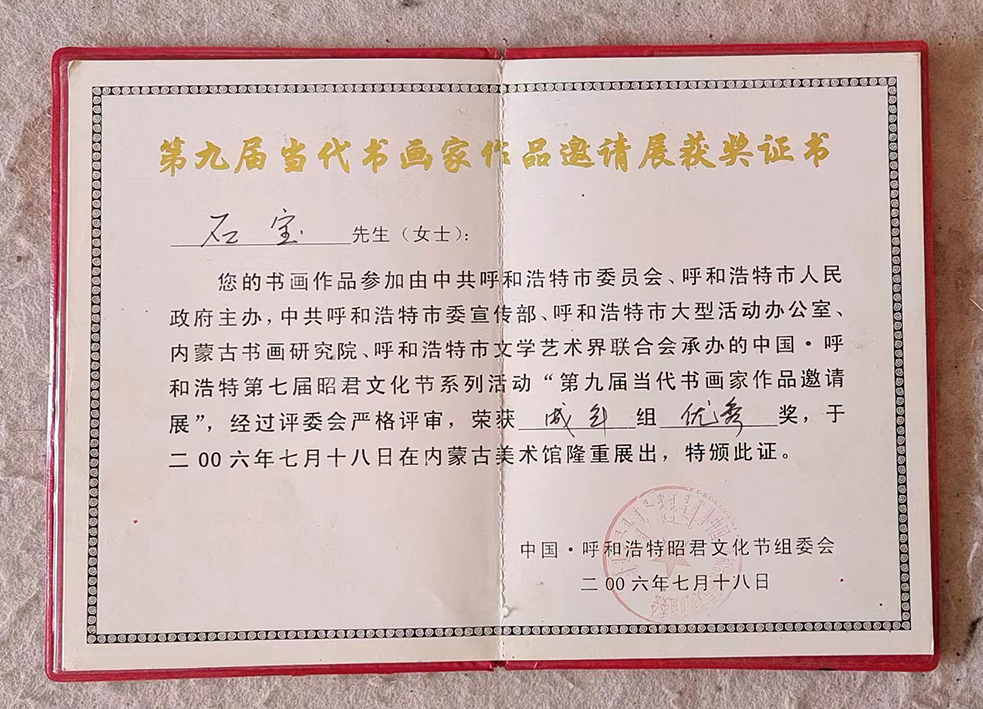 第九届当代书画家作品邀请展获奖证书
石宝 先生（女士）：
您的书画作品参加由中共呼和浩特市委员会、呼和浩特市人民
政府主办，中共呼和浩特市委宣传部、呼和浩特市大型活动办公室、
内蒙古书画研究院、呼和浩特市文学艺术界联合会承办的中国·呼
和浩特第七届昭君文化节系列活动“第九届当代书画家作品邀请
展”，经过评委会严格评审，荣获 成年 组 优秀 奖，于
二00六年七月十八日在内蒙古美术馆隆重展出，特颁此证。
中国·呼和浩特昭君文化节组委会
二00六年七月十八日